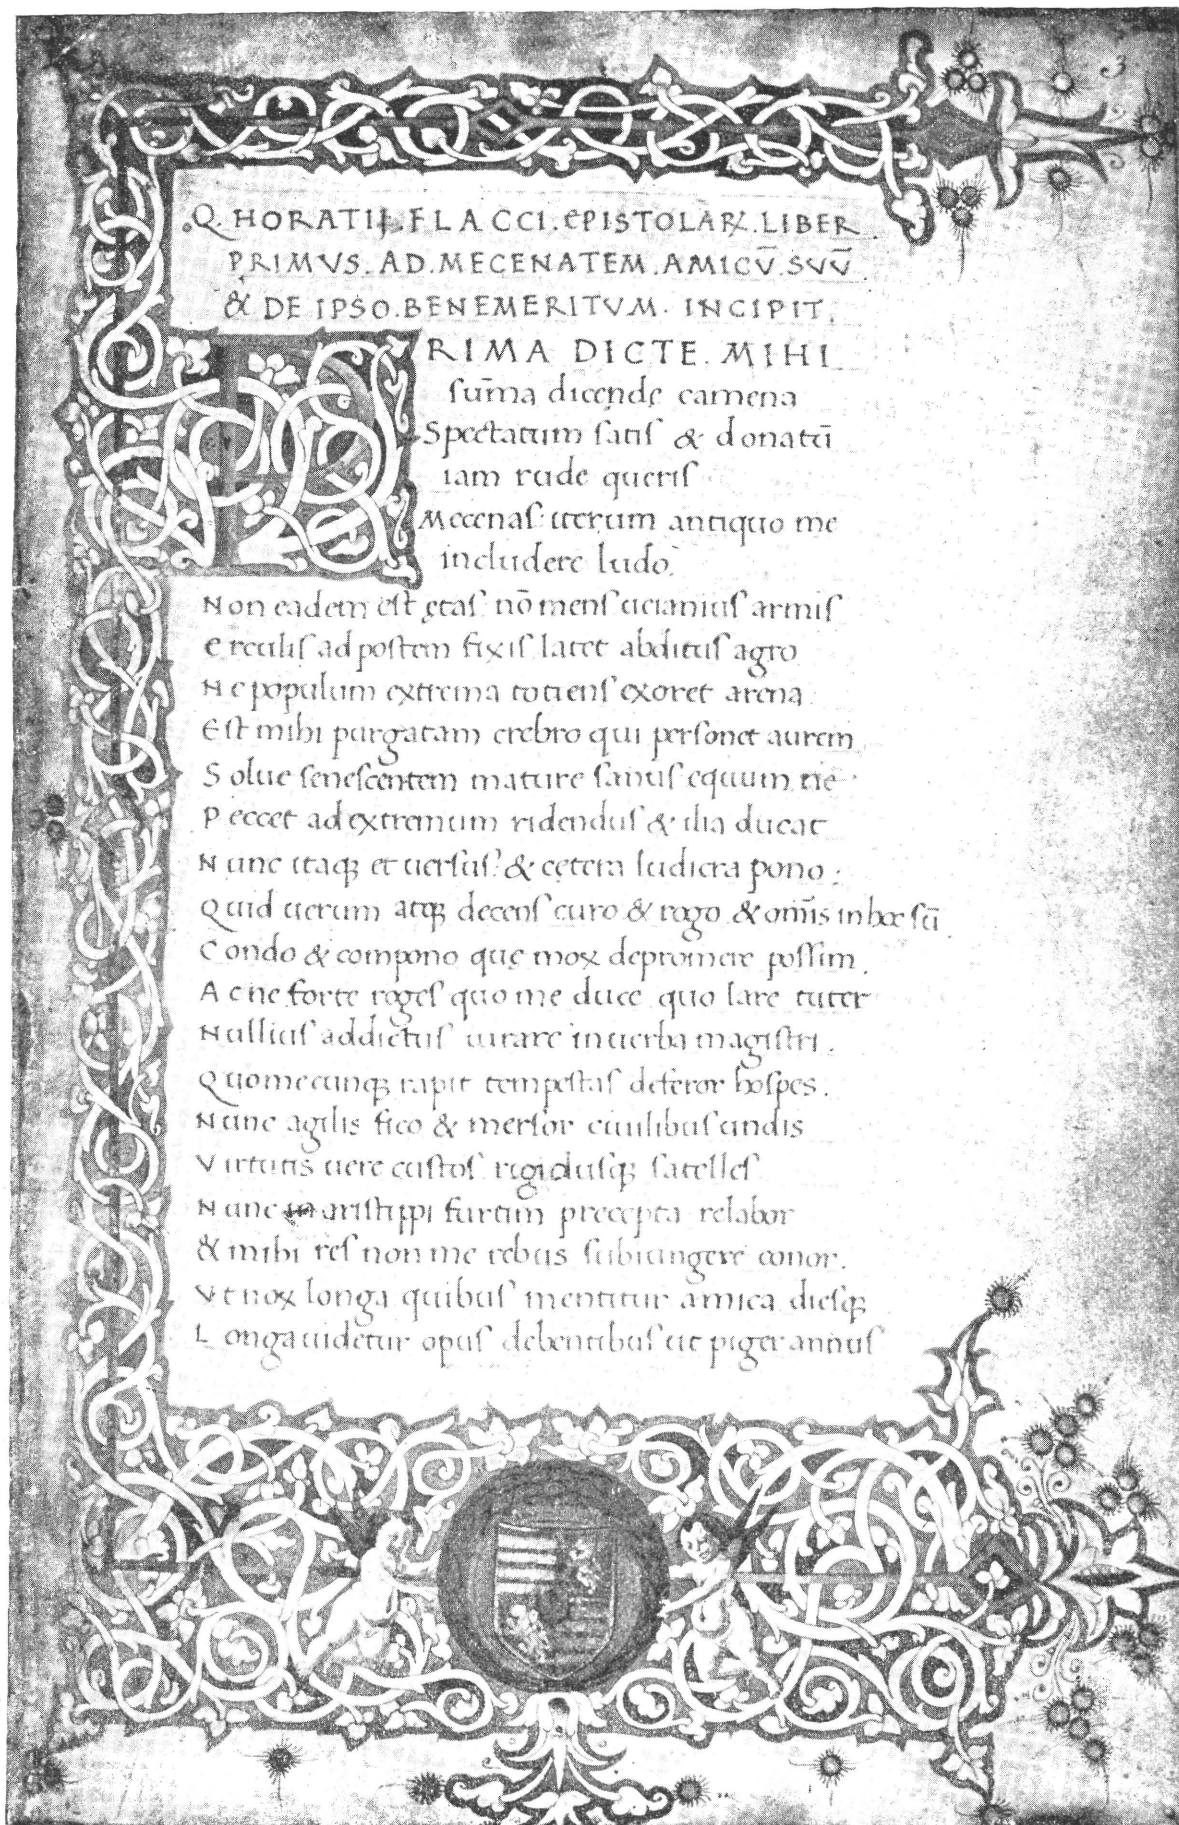 3
.Q. HORATII. FLACCI. EPISTOLAꝜ. LIBER
PRIMVS. AD. MECENATEM. AMICV̄. SVV̄
& DE IPSO. BENEMERITVM. INCIPIT.
PRIMA DICTE. MIHI
ſūma dicendę camena
Spectatum ſatiſ & donatū
iam rude queriſ
Mecenaſ: iterum antiquo me
includere ludo.
Non eadem eſt ętaſ nō menſ ueianiuſ armis
e rculiſ ad poſtem fixiſ latet abdituſ agro
Ne populum extrema totienſ exoret arena
Eſt mihi purgatam crebro qui perſonet aurem
Solue ſeneſcentem mature ſanuſ equum ne
Peccet ad extremum ridenduſ & ilia ducat
Nunc itaqꝫ et uerſuſ: & cętera ludicra pono:
Quid uerum atqꝫ decenſ curo & rogo & om̄is in hoc ſū
Condo & compono quę mox depromere poſſim.
Ac ne forte rogeſ quo me duce quo lare tuter
Nulliuſ addictuſ iurare in uerba magiſtri.
Quo me cunqꝫ rapit tempeſtas deferor hoſpes.
Nunc agilis fico & merſor ciuilibuſ undis
Virtutis uere cuſtoſ rigiduſqꝫ ſatelleſ
Nunc in ariſtippi furtim precepta relabor
& mihi reſ non me rebus ſubiungere conor.
Vt nox longa quibuſ mentitur amica dieſqꝫ
Longa uidetur opuſ debentibuſ ut piger annuſ